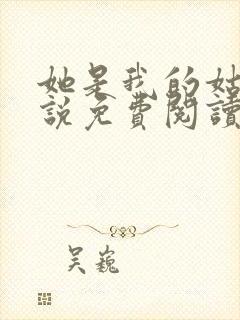 她是我的姑
說免費閱讀
吴巍